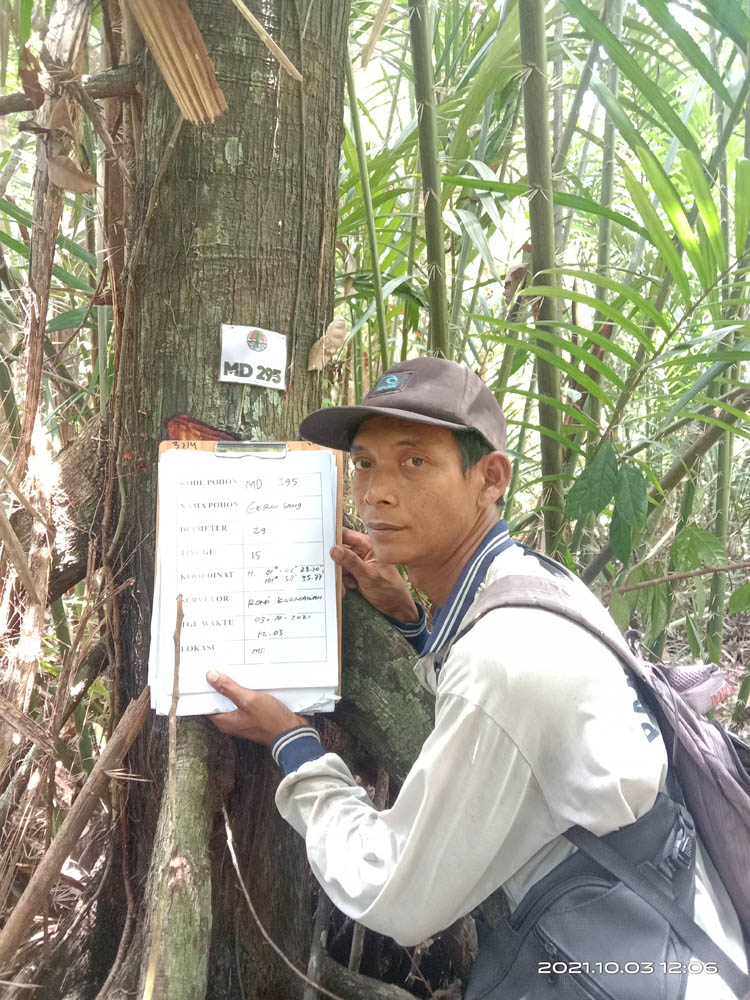 MD 295
KODE POHON MD 295
NAMA POHON GERONGGANG
DIAMETER 29
TINGGI 15
KOORDINAT N. 01°
101°
SURVEYOR RONI KURNIAWAN
TGL WAKTU 03-10-2021
12.03
LOKASI MD
2021.10.03 12:06